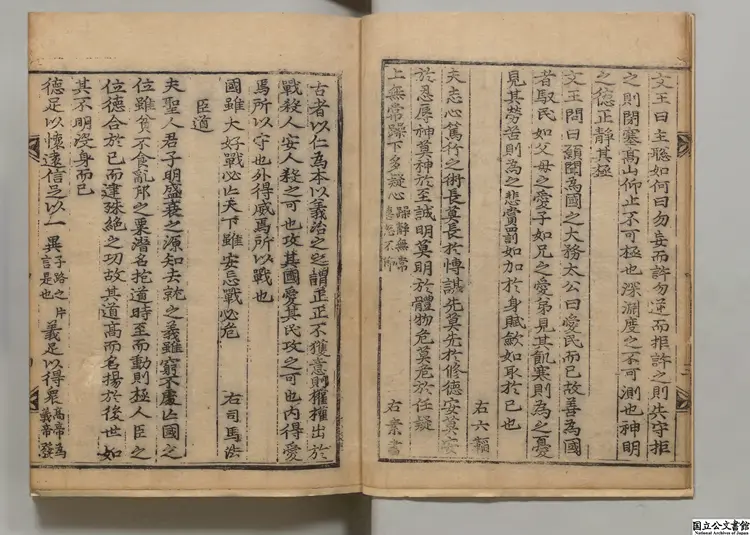 文王曰主聡如何曰勿妄而許勿逆而拒許之則失守拒
之則閉塞髙山仰止不可極也深淵度之不可測也神明
之德正靜其極
文王問曰願聞為國之大務太公曰愛民而已故善為國
者馭民如父母之愛子如兄之愛弟見其飢寒則為之憂
見其勞苦則為之悲賞罰如加於身賦歛如取於己也
右六韜
夫志心篤行之術長莫長於慱謀先莫先於修德安莫安
於忍辱神莫神於至誠明莫明於體物危莫危於任疑
上無常躁下多疑心
躁靜無常
右素書
古者以仁為本以義治之之謂正正不獲意則權權出於
戰殺人安人殺之可也攻其國愛其民攻之可也内得愛
焉所以守也外得威焉所以戰也
國雖大好戰必亡天下雖安忘戰必危
右司馬法
臣道
夫聖人君子明盛衰之源知去就之義雖窮不處亡國之
位雖貧不食亂邦之粟潜名抱道時至而動則極人臣之
位德合於己而建殊絶之功故其道髙而名揚於後世如
其不明沒身而已
德足以懷遠信足以一異
子路之片
言是也
義足以得衆
髙帝為
義帝發
国立公文書館
National Archives of Japan